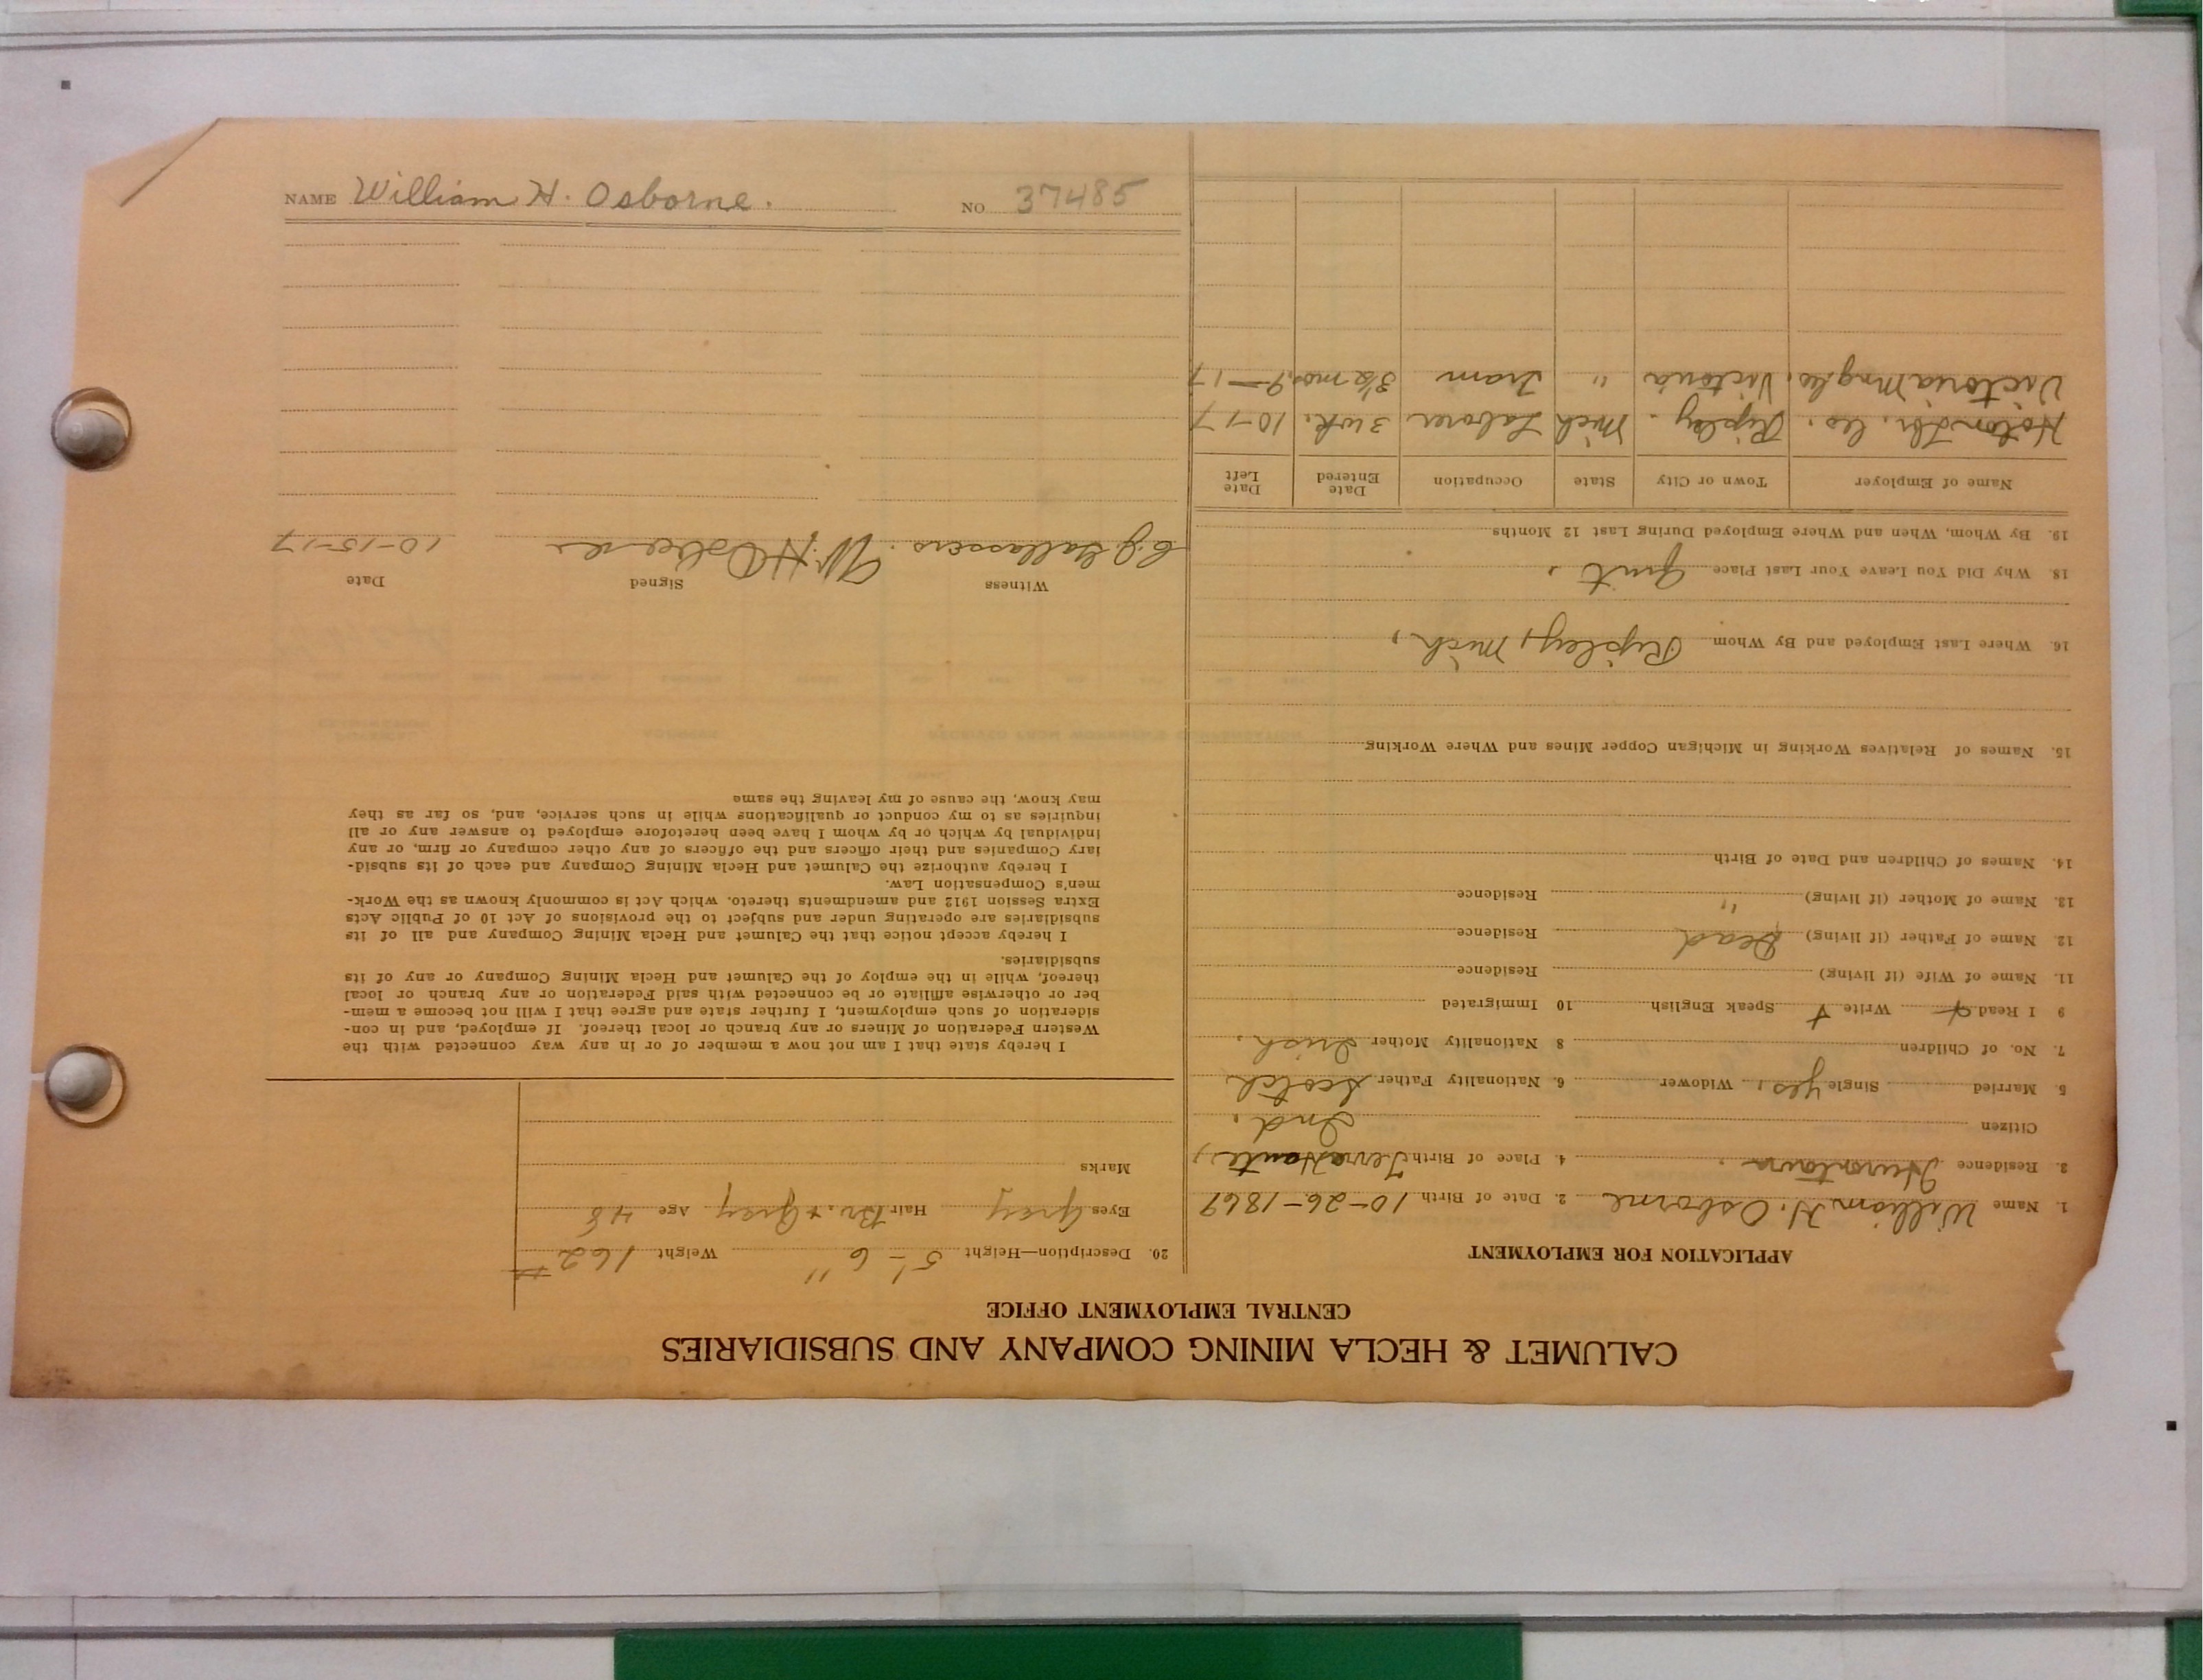 CALUMET & HECLA MINING COMPANY AND SUBSIDIARIES
CENTRAL EMPLOYMENT OFFICE
APPLICATION FOR EMPLOYMENT
1. Name William H. Osborne 2. Date of Birth 10-26-1869
3. Residence Hurontown. 4. Place of Birth Terra Haute,
Citizen Ind.
5. Married Single yes, Widower 6. Nationality Father Scotch
7. No. of Children 8 Nationality Mother Irish.
9 I Read Write Speak English 10 Immigrated
11. Name of Wife (if living) Residence
12. Name of Father (if living) Dead Residence
13. Name of Mother (if living) " Residence
14. Names of Children and Date of Birth
15. Names of Relatives Working in Michigan Copper Mines and Where Working
16. Where Last Employed and By Whom Ripley, Mich,
18. Why Did You Leave Your Last Place Quit,
19. By Whom, When and Where Employed During Last 12 Months
Name of Employer Town or City State Occupation Date Entered Date Left
Ripley. Mich Laborer 3 wk. 10-17
Victoria Mng Co, Victoria " Tram 3½ mos, 9-17
20. Description—Height 5'-6" Weight 162#
Eyes Grey Hair Br. + Grey Age 48
Marks
I hereby state that I am not now a member of or in any way connected with the
Western Federation of Miners or any branch or local thereof. If employed, and in con-
sideration of such employment, I further state and agree that I will not become a mem-
ber or otherwise affiliate or be connected with said Federation or any branch or local
thereof, while in the employ of the Calumet and Hecla Mining Company or any of its
subsidiaries.
I hereby accept notice that the Calumet and Hecla Mining Company and all of its
subsidiaries are operating under and subject to the provisions of Act 10 of Public Acts
Extra Session 1912 and amendments thereto. which Act is commonly known as the Work-
men's Compensation Law.
I hereby authorize the Calumet and Hecla Mining Company and each of its subsid-
iary Companies and their officers and the officers of any other company or firm, or any
individual by which or by whom I have been heretofore employed to answer any or all
inquiries as to my conduct or qualifications while in such service, and, so far as they
may know, the cause of my leaving the same
Witness Signed Date
W. H Osborne 10-15-17
NAME William H. Osborne. NO 37485